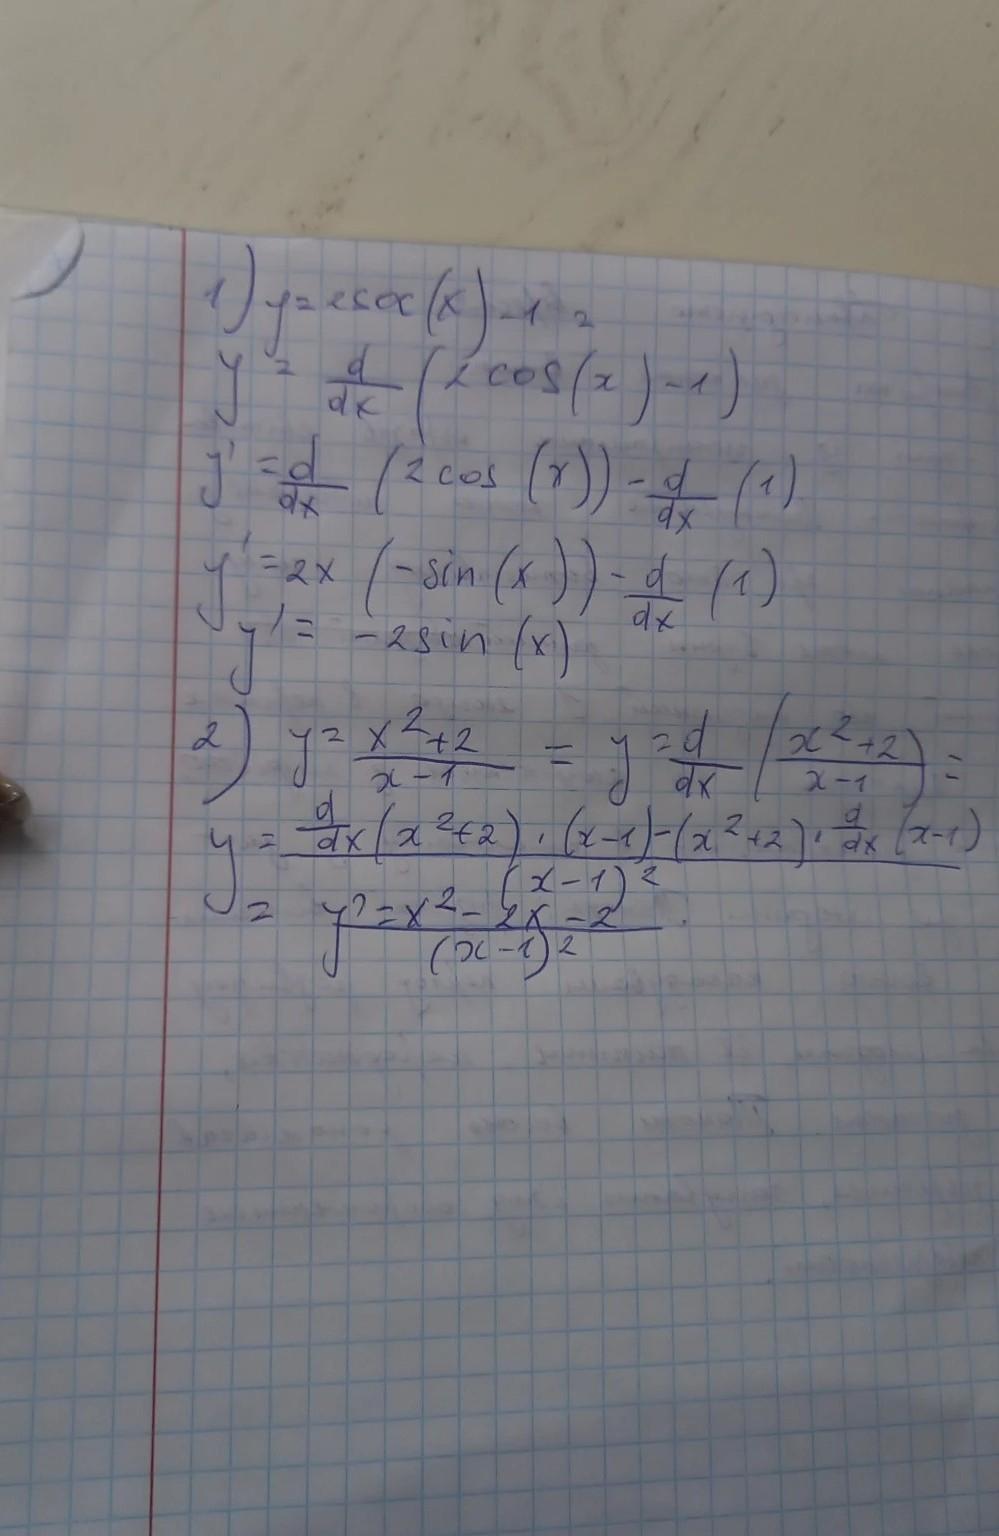 1) y=2sox(x)-1=
y = d/dx (2cos(x)-1)
y' = d/dx (2cos(x)) - d/dx (1)
y' = 2x (-sin(x)) - d/dx (1)
y' = -2sin(x)
2) y = x²+2/x-1 = y = d/dx (x²+2/x-1) =
y = d/dx(x²+2)·(x-1)-(x²+2)·d/dx(x-1)/(x-1)²
= y' = x²-2x-2/(x-1)²